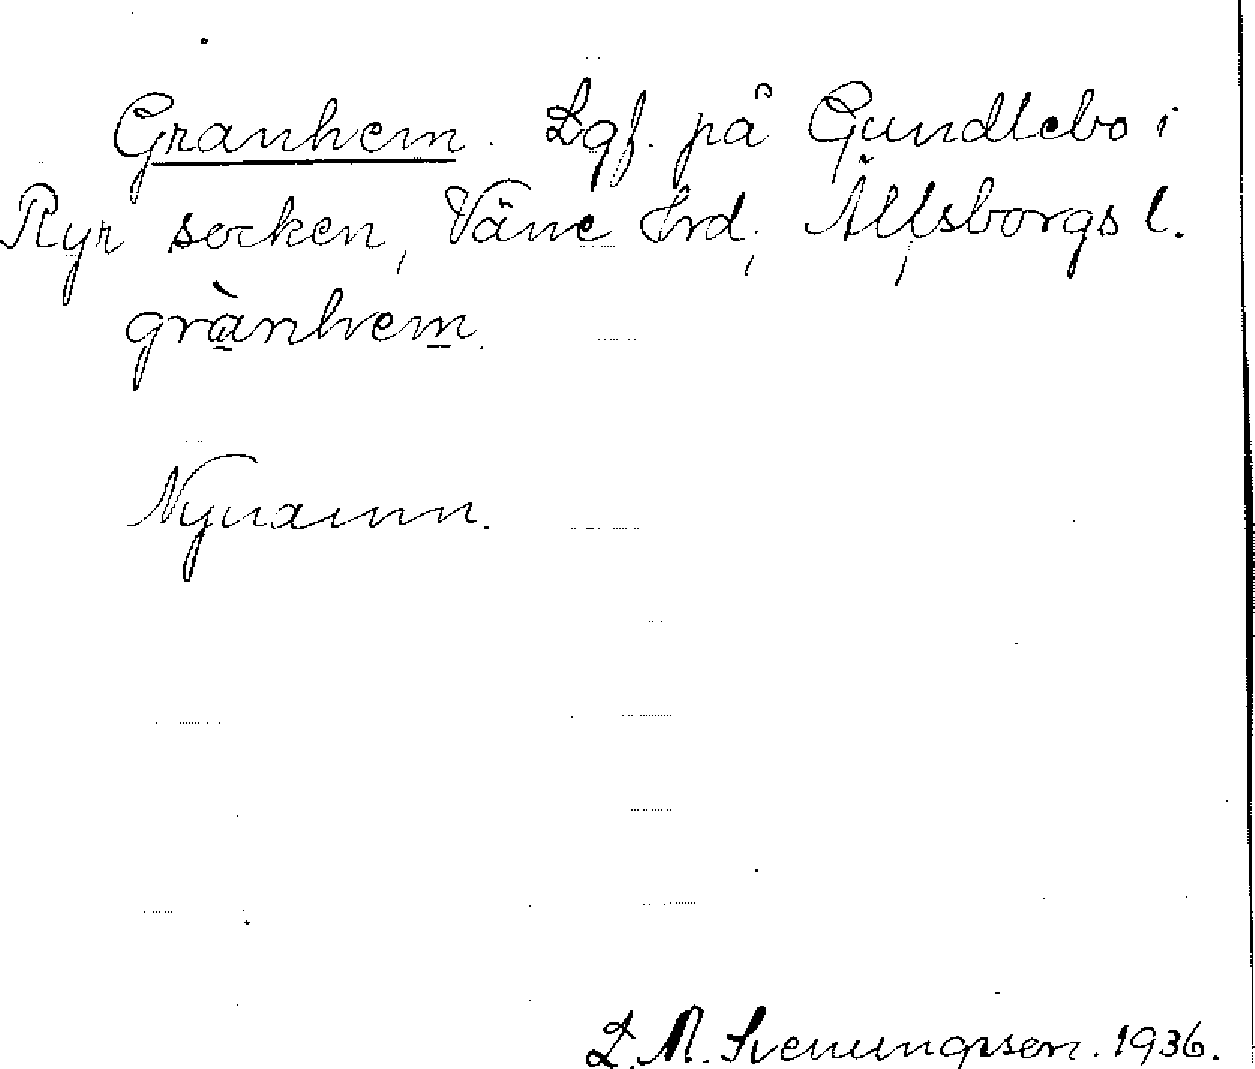 Granhem. Lgf. på Gundlebo i
Ryr socken, Väne hrd, Älfsborgs l.
grànhem.
Nynamn.
L. M. Svenungsson. 1936.